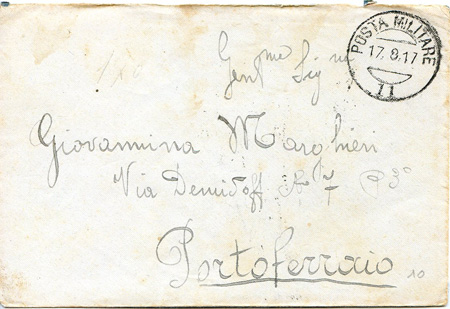 POSTA MILITARE
17.8.17
11
Gent^me Sig^ne
Giovannina Marghieri
Via Demidoff N 7 P 3°
Portoferraio
10